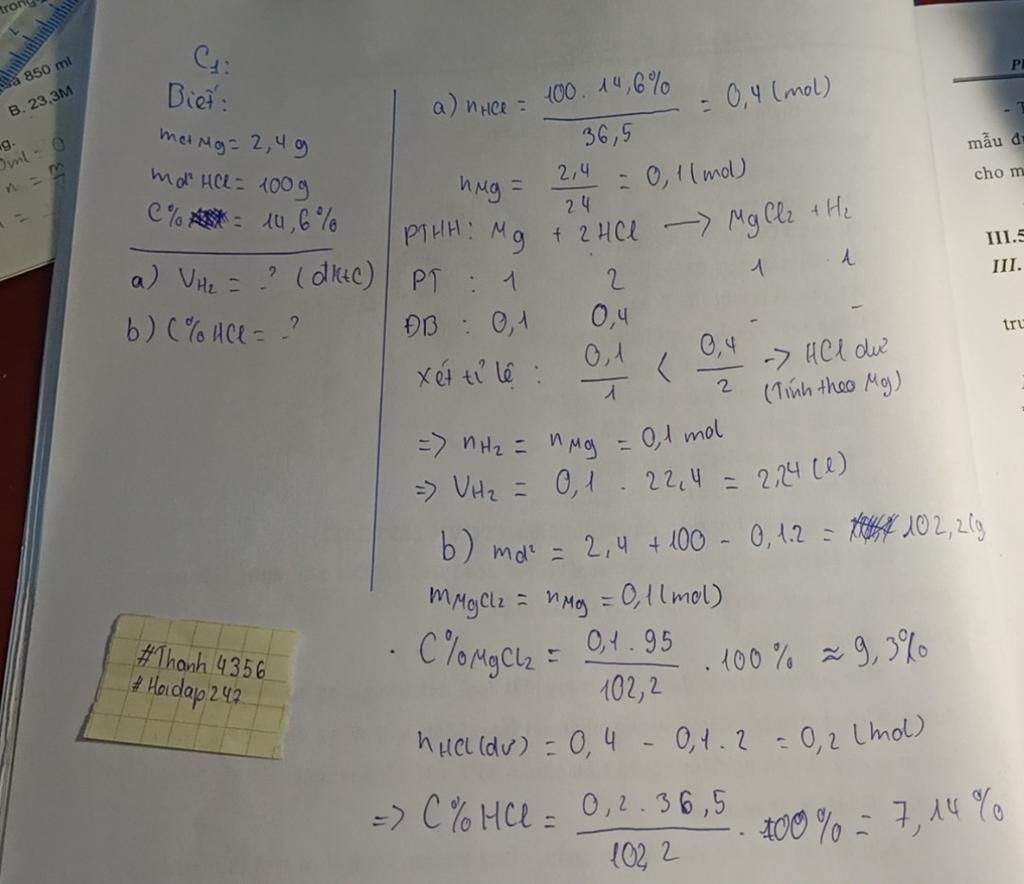 trong
a 850 ml
B. 23,3M
C1:
Biết:
mct Mg = 2,4 g
md² HCl = 100g
C% = 14,6%
a) VH2 = ? (đktc)
b) C% HCl = ?
a) nHCl = 100 . 14,6% / 36,5 = 0,4 (mol)
nMg = 2,4 / 24 = 0,1 (mol)
PTHH: Mg + 2HCl → MgCl2 + H2
PT : 1 2 1 1
ĐB : 0,1 0,4 - -
Xét tỉ lệ : 0,1 / 1 < 0,4 / 2 → HCl dư
(Tính theo Mg)
=> nH2 = nMg = 0,1 mol
=> VH2 = 0,1 . 22,4 = 2,24 (l)
b) md² = 2,4 + 100 - 0,1.2 = 102,2(g
mMgCl2 = nMg = 0,1 (mol)
. C%MgCl2 = 0,1 . 95 / 102,2 . 100% ≈ 9,3%
nHCl(dư) = 0,4 - 0,1 . 2 = 0,2 (mol)
=> C%HCl = 0,2 . 36,5 / 102,2 . 100% = 7,14%
#Thanh4356
#Hoidap247
mẫu
cho m
III.5
III.
tru